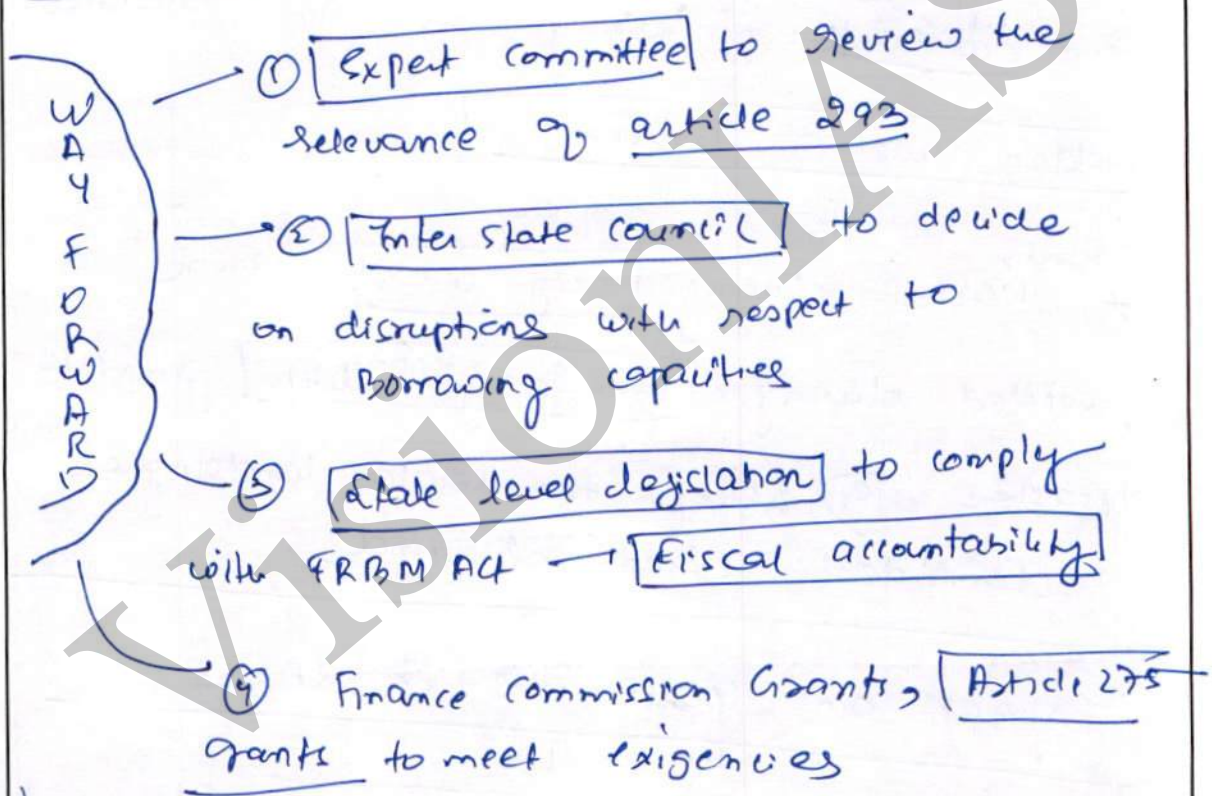 WAY FORWARD
① Expert committee to review the
relevance of article 293
② Inter state council to decide
on disruptions with respect to
Borrowing capacities
③ State level legislation to comply
with FRBM Act → Fiscal accountability
④ Finance Commission Grants, Article 275
grants to meet exigencies
VisionIAS